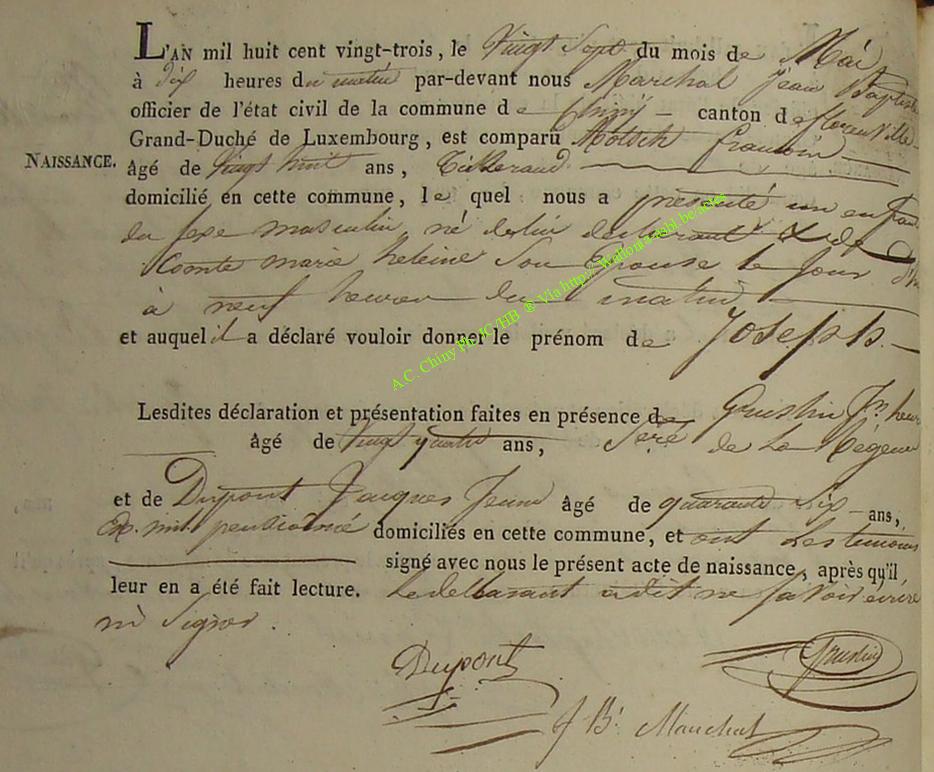 L'AN mil huit cent vingt-trois, le Vingt Sept du mois de Mai
à dix heures du matin par-devant nous Marchal Jean Baptiste
officier de l'état civil de la commune de Chiny – canton de florenville –
Grand-Duché de Luxembourg, est comparu françois
NAISSANCE. âgé de Vingt huit ans, Tisserand
domicilié en cette commune, le quel nous a présenté un enfant
du sexe masculin, né de lui declarant & de
Comte marie heleine Son Epouse le jour
à neuf heures du matin
et auquel il a déclaré vouloir donner le prénom de Joseph. –
A.C. Chiny Ph JC/HB ® Via http://Wallonia.asbl.be/actes
Lesdites déclaration et présentation faites en présence de Grustin Jn
âgé de Vingt quatre ans, de La
et de Dupont Jacques âgé de quarante Six – ans,
Ex. mil. pensionné domiciliés en cette commune, et ont Les temoins
signé avec nous le présent acte de naissance, après qu'il
leur en a été fait lecture. Le declarant a dit ne savoir ecrire
ni Signer.
Dupont Grustin
J Bt Marchal